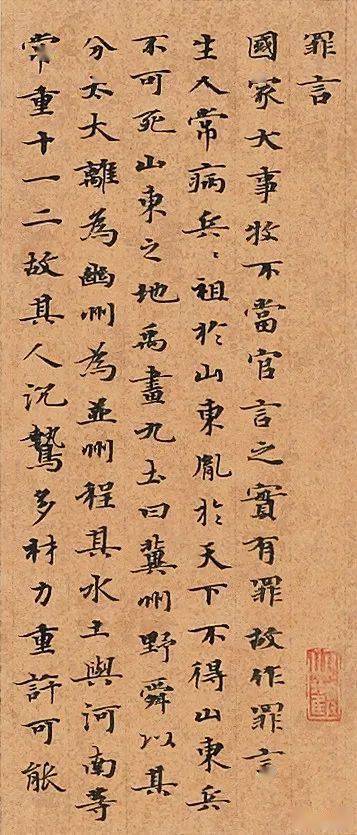 罪言
國家大事牧不當官言之實有罪故作罪言
生人常病兵〻祖於山東胤於天下不得山東兵
不可死山東之地禹畫九土曰冀州野舜以其
分太大離為幽州為並州程其水土與河南等
常重十一二故其人沉鷙多材力重許可能